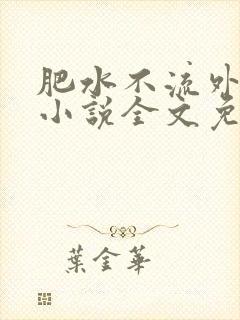 肥水不流外
小說全文免
葉金華